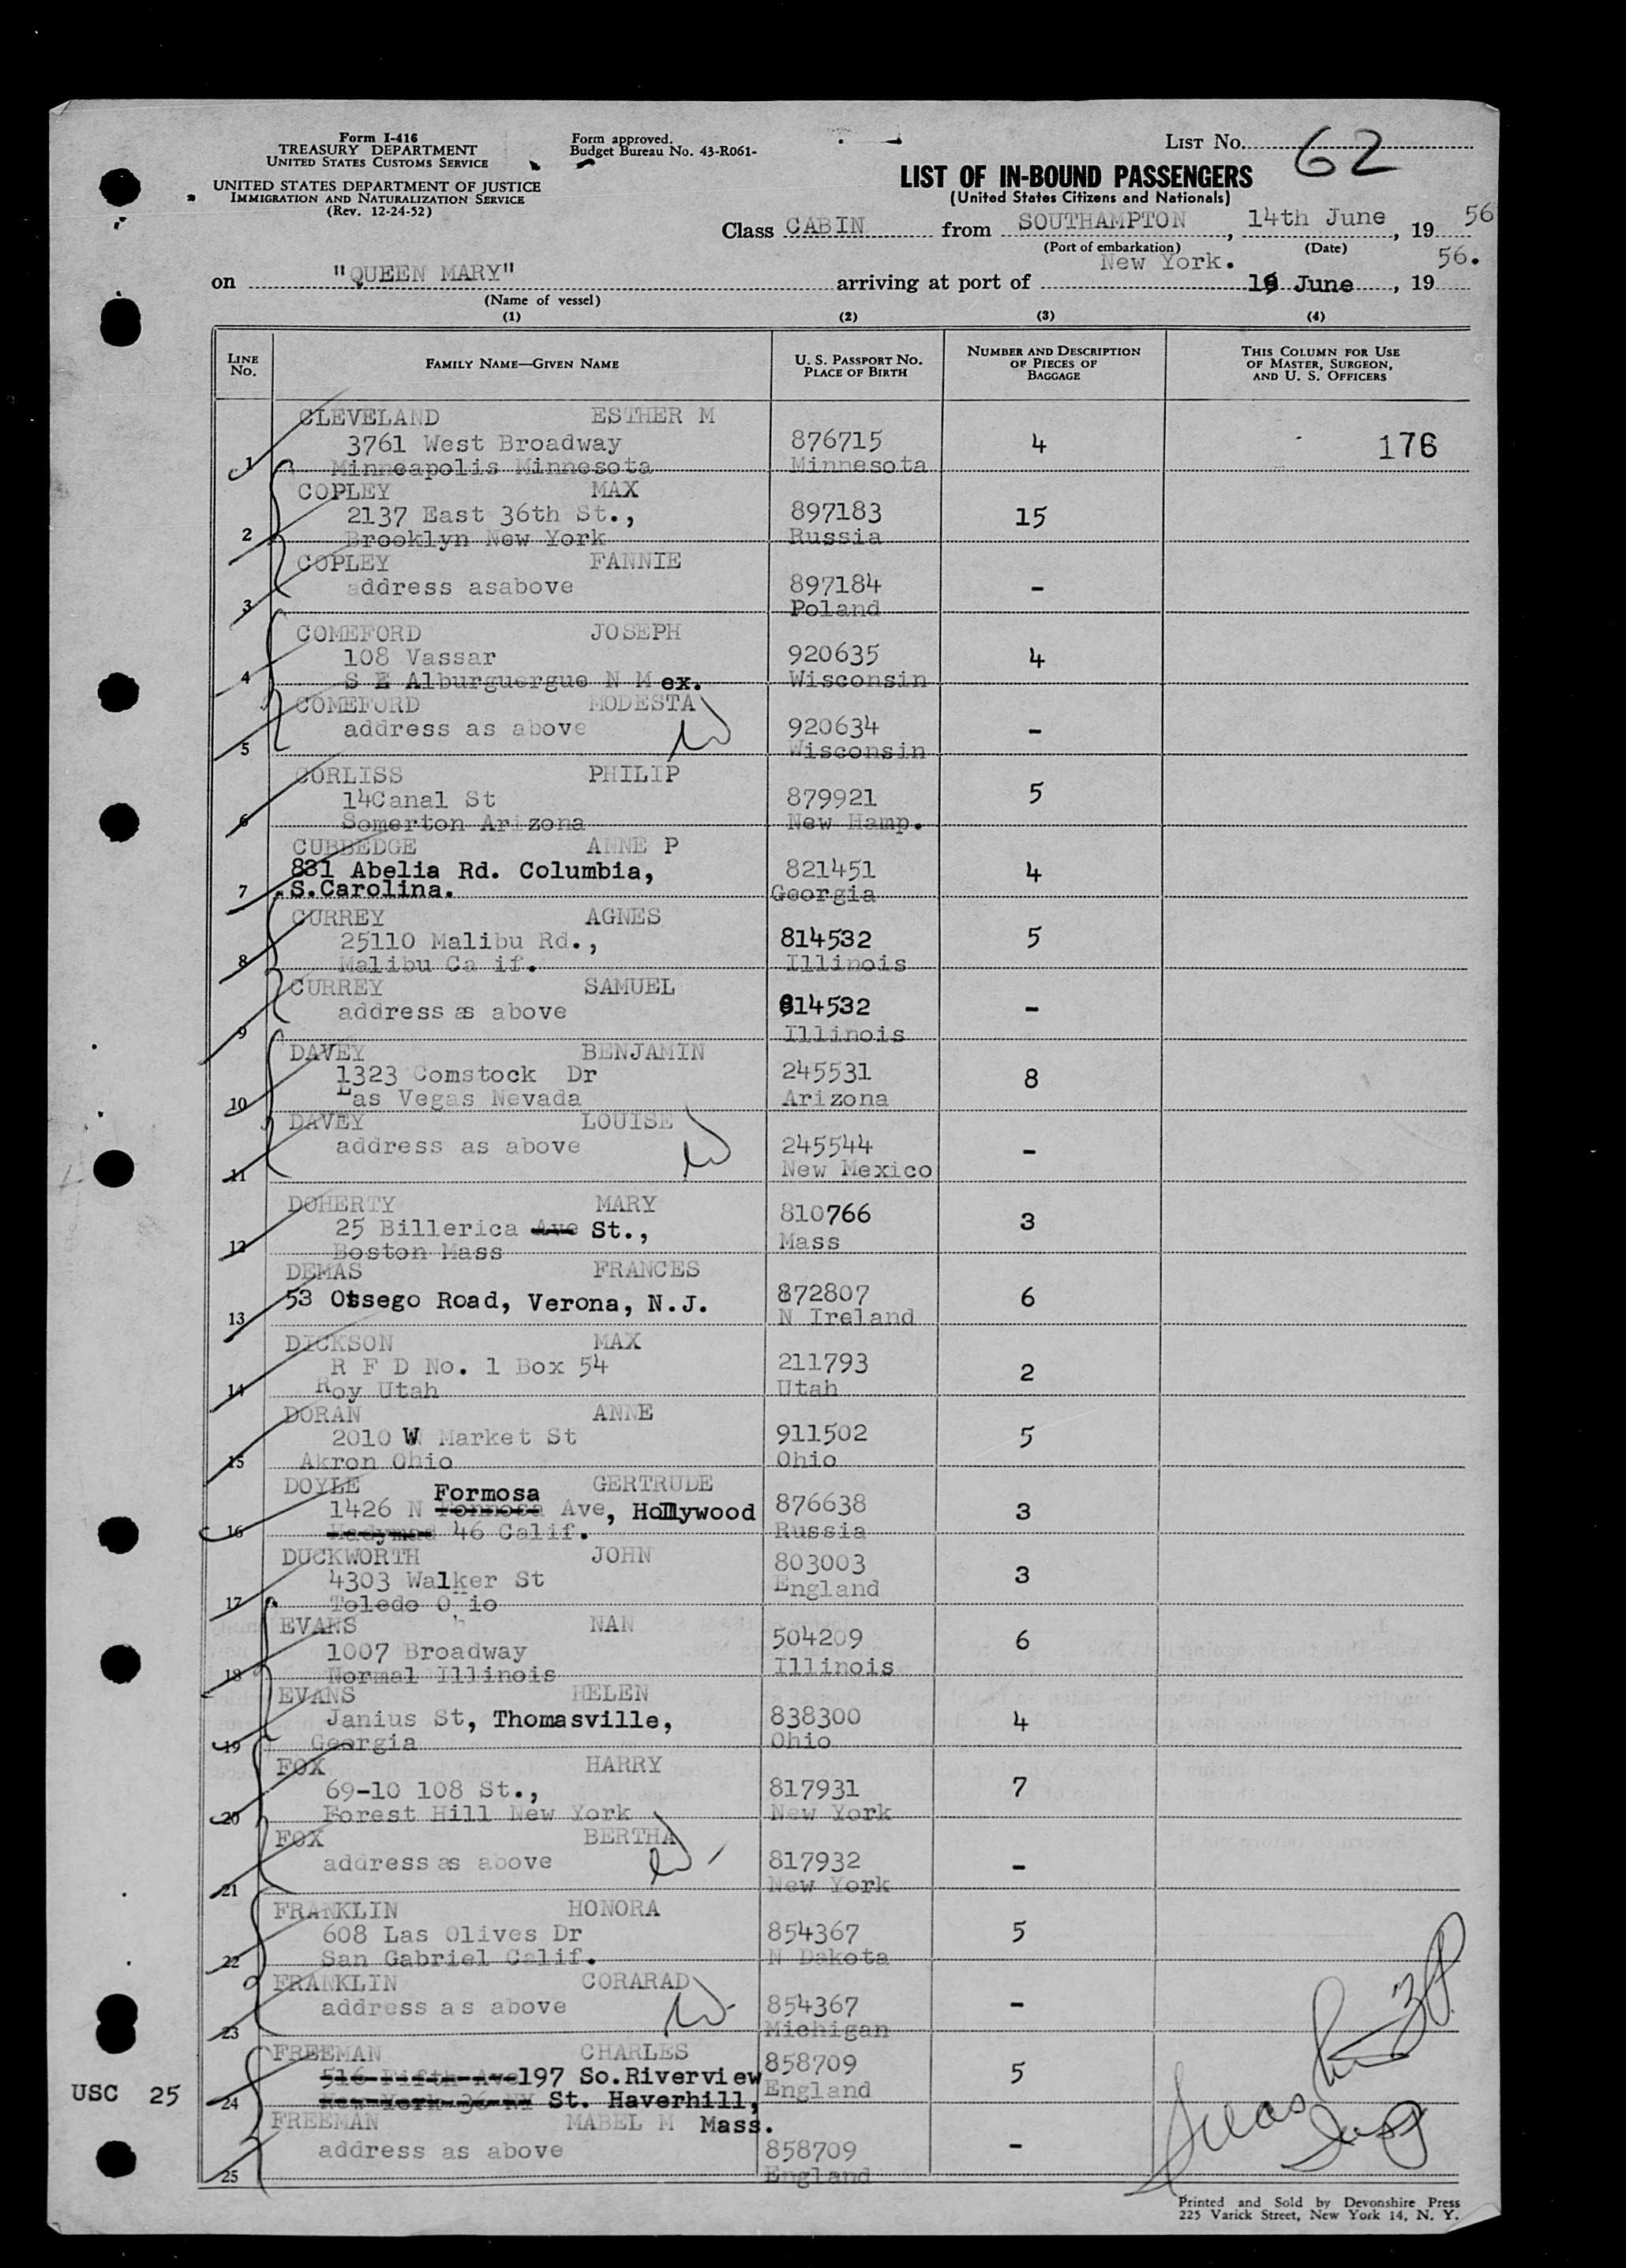 Form I-416
TREASURY DEPARTMENT
UNITED STATES CUSTOMS SERVICE
UNITED STATES DEPARTMENT OF JUSTICE
IMMIGRATION AND NATURALIZATION SERVICE
(Rev. 12-24-52)
Form approved.
Budget Bureau No. 43-R061-
LIST NO. 62
LIST OF IN-BOUND PASSENGERS
(United States Citizens and Nationals)
Class CABIN from SOUTHAMPTON, 14th June, 19 56
(Port of embarkation) (Date)
on "QUEEN MARY" arriving at port of New York. 19 June, 19 56.
(Name of vessel)
(1) (2) (3) (4)
LINE NO. FAMILY NAME—GIVEN NAME U. S. PASSPORT NO. PLACE OF BIRTH NUMBER AND DESCRIPTION OF PIECES OF BAGGAGE THIS COLUMN FOR USE OF MASTER, SURGEON, AND U. S. OFFICERS
CLEVELAND ESTHER M
3761 West Broadway 876715 4 176
1 Minneapolis Minnesota Minnesota
COPLEY MAX
2137 East 36th St., 897183 15
2 Brooklyn New York Russia
COPLEY FANNIE
address asabove 897184 -
3 Poland
COMEFORD JOSEPH
108 Vassar 920635 4
4 S E Alburguergue N M ex. Wisconsin
COMEFORD MODESTA
address as above 920634 -
5 Wisconsin
CORLISS PHILIP
14Canal St 879921 5
6 Somerton Arizona New Hamp.
CUBBEDGE ANNE P
831 Abelia Rd. Columbia, 821451 4
7 S.Carolina. Georgia
CURREY AGNES
25110 Malibu Rd., 814532 5
8 Malibu Ca if. Illinois
CURREY SAMUEL
address as above 814532 -
9 Illinois
DAVEY BENJAMIN
1323 Comstock Dr 245531 8
10 Las Vegas Nevada Arizona
DAVEY LOUISE
address as above 245544 -
11 New Mexico
DOHERTY MARY
25 Billerica Ave St., 810766 3
12 Boston Mass Mass
DEMAS FRANCES
53 Otsego Road, Verona, N.J. 872807 6
13 N Ireland
DICKSON MAX
R F D No. 1 Box 54 211793 2
14 Roy Utah Utah
DORAN ANNE
2010 W Market St 911502 5
15 Akron Ohio Ohio
DOYLE Formosa GERTRUDE
1426 N Ave, Hollywood 876638 3
16 46 Calif. Russia
DUCKWORTH JOHN
4303 Walker St 803003 3
17 Toledo Ohio England
EVANS NAN
1007 Broadway 504209 6
18 Normal Illinois Illinois
EVANS HELEN
Janius St, Thomasville, 838300 4
19 Georgia Ohio
FOX HARRY
69-10 108 St., 817931 7
20 Forest Hill New York New York
FOX BERTHA
address as above 817932 -
21 New York
FRANKLIN HONORA
608 Las Olives Dr 854367 5
22 San Gabriel Calif. N Dakota
FRANKLIN CORARAD
address as above 854367 -
23 Michigan
FREEMAN CHARLES
516 Fifth Ave 197 So.Riverview 858709 5
USC 25
24 New York 36 NY St. Haverhill, England
FREEMAN MABEL M Mass.
address as above 858709 -
25 England
Printed and Sold by Devonshire Press
225 Varick Street, New York 14, N. Y.